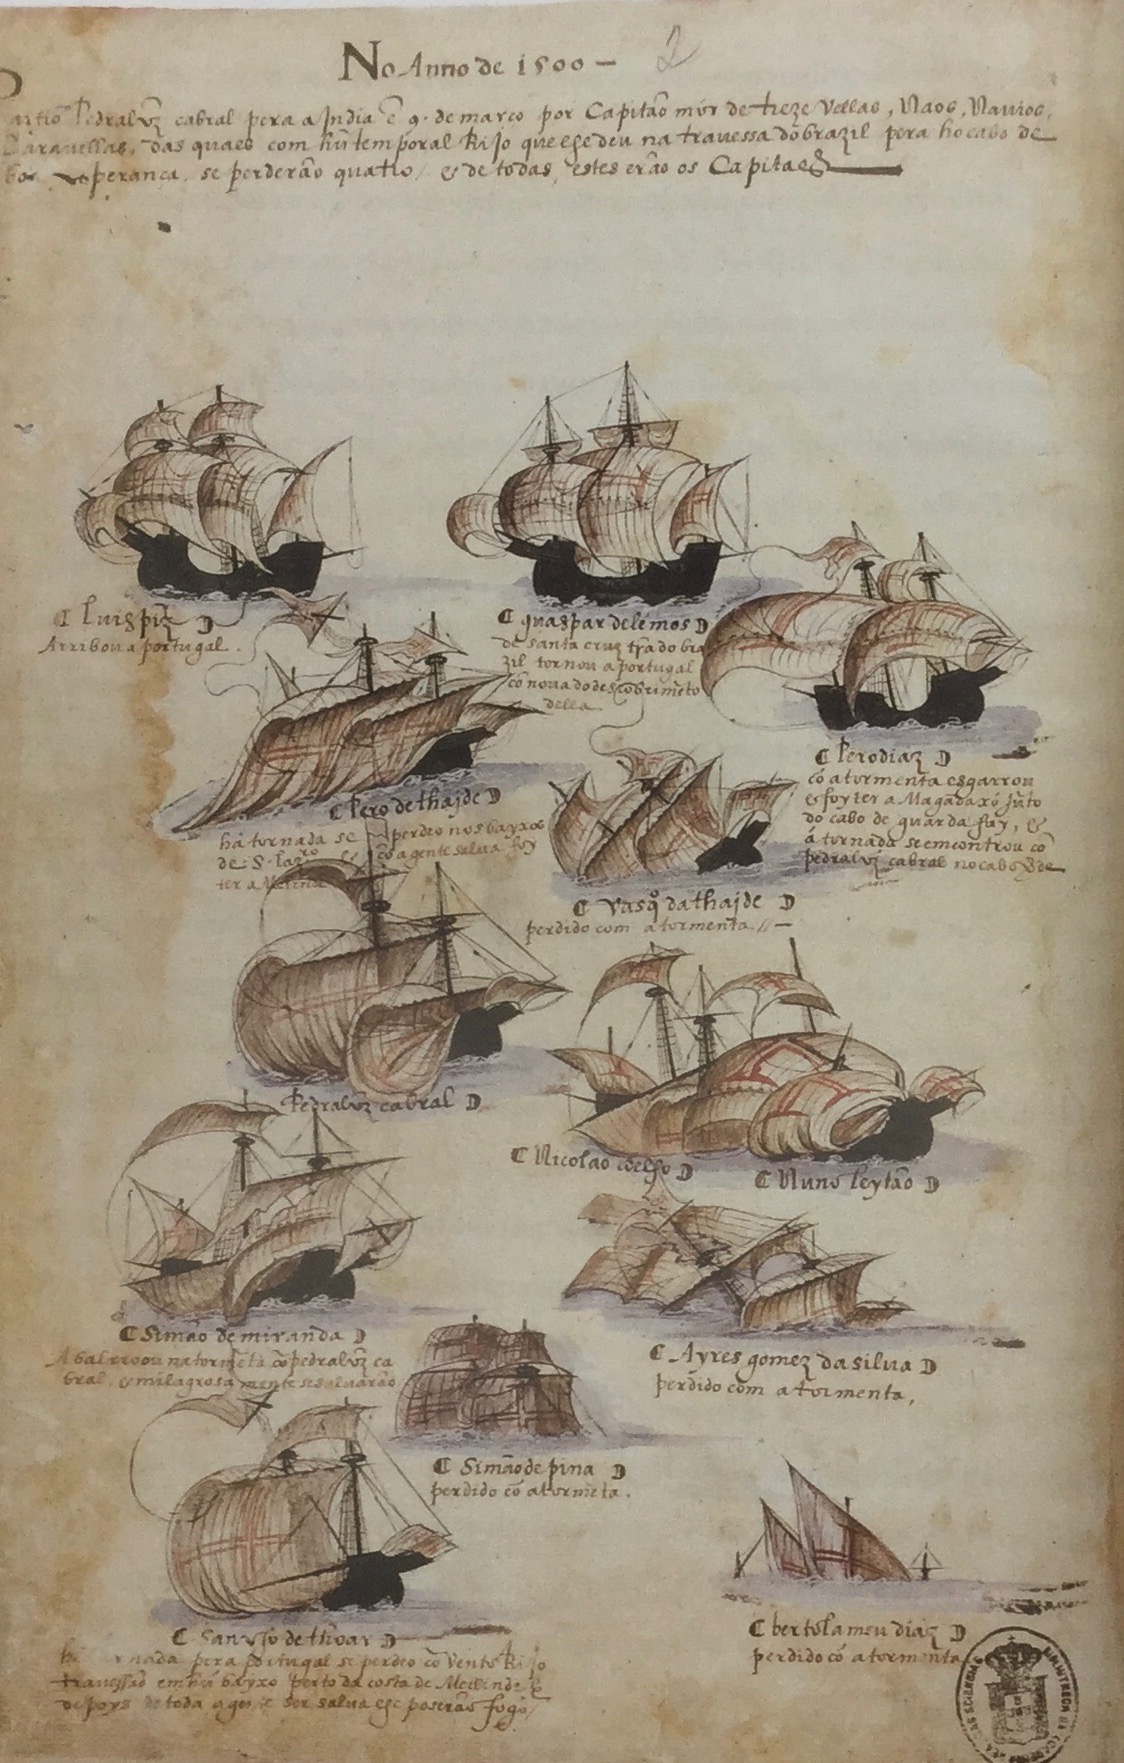 No Anno de 1500 – 2
Partio Pedralvz cabral pera a India e 9. de março por Capitão mór de treze Vellas, Naos, Navios,
Caravellas, das quaes com hũ temporal Rijo que lhe deu na travessa do brazil pera ho cabo de
boa esperança, se perderão quatro, & de todas, estes erão os Capitaes
Luis piz
Arribou a portugal.
guaspar de lémos
de santa cruz trã do bra
zil tornou a portugal
cõ nova do descobrimẽto
della
Pero diaz
cõ a tormenta esgarrou
& foy ter a Magadaxó jũto
do cabo de guardafuy, &
á tornada se emcontrou cõ
pedralvz cabral no cabo Vde
Pero de thajde
há tornada se perdeo nos bayxos
de S. Lazro & cõ a gente salva foy
ter a Melinde
Vasq° dathajde
perdido com a tormenta // –
Pedralvz cabral
Nicolao coelho
Nuno leytão
Simão de miranda
Abalrroou na tormẽta cõ pedralvz ca
bral, & milagrosamente se salvarão
Ayres gomez da silva
perdido com a tormenta,
Simão de pina
perdido cõ a tormẽta.
Sancho de thoar
tornada pera portugal se perdeo cõ vento Rijo
travessão em hũ bayxo perto da costa de Melinde &
depoys de toda a gente ser salva lhe poserão fogo
bertolameu diaz
perdido cõ a tormenta